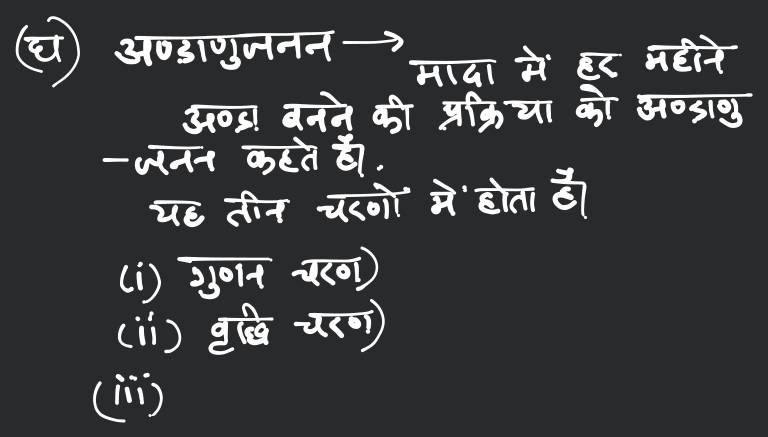 (घ) अण्डाणुजनन → मादा में हर महीने
अण्डा बनने की प्रक्रिया को अण्डाणु
-जनन कहते हैं।.
यह तीन चरणों में होता है।
(i) गुणन चरण)
(ii) वृद्धि चरण)
(iii)